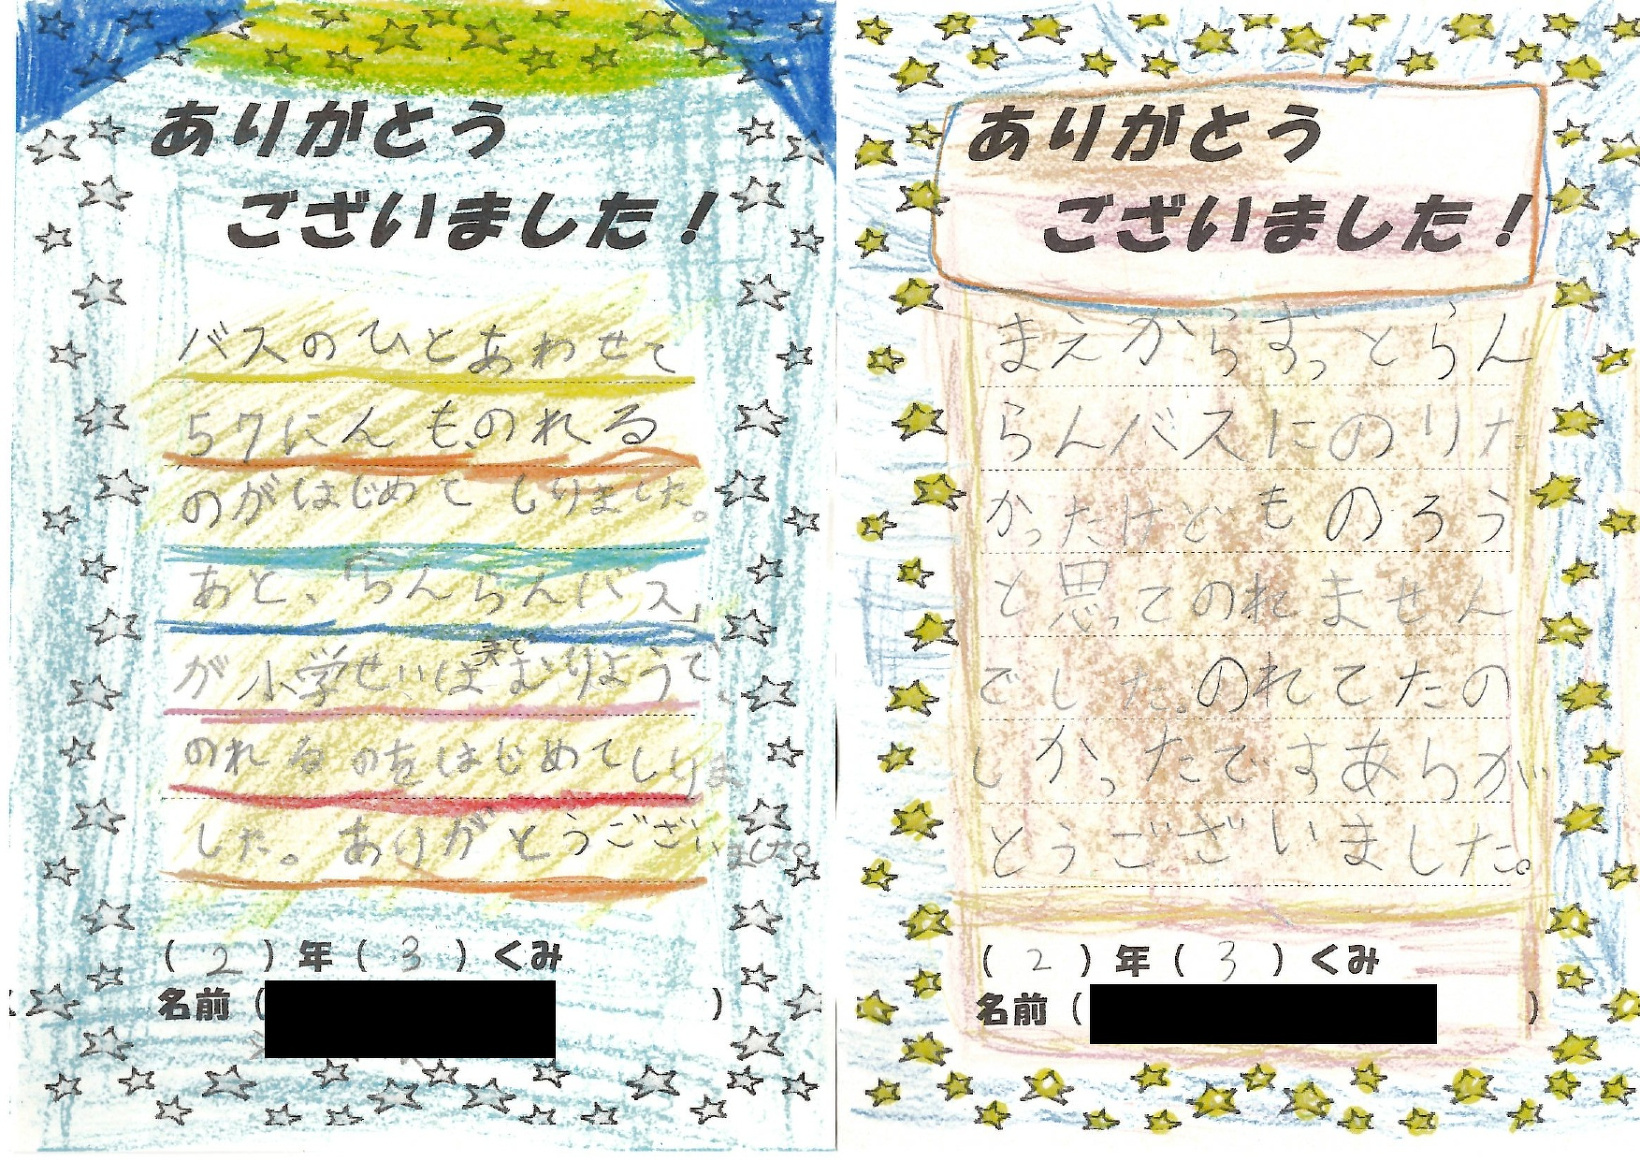 ありがとう
ございました！
バスのひとあわせて
57にんも、のれる
のがはじめてしりました。
あと、「らんらんバス」
が小学せいはまでむりょうで、
のれるのをはじめてしりま
した。ありがとうございました。
（2）年（3）くみ
名前（　）
ありがとう
ございました！
まえからずっとらん
らんバスにのりた
かったけどものろう
と思ってのれません
でした。のれてたの
しかったですあらが
とうございました。
（2）年（3）くみ
名前（　）